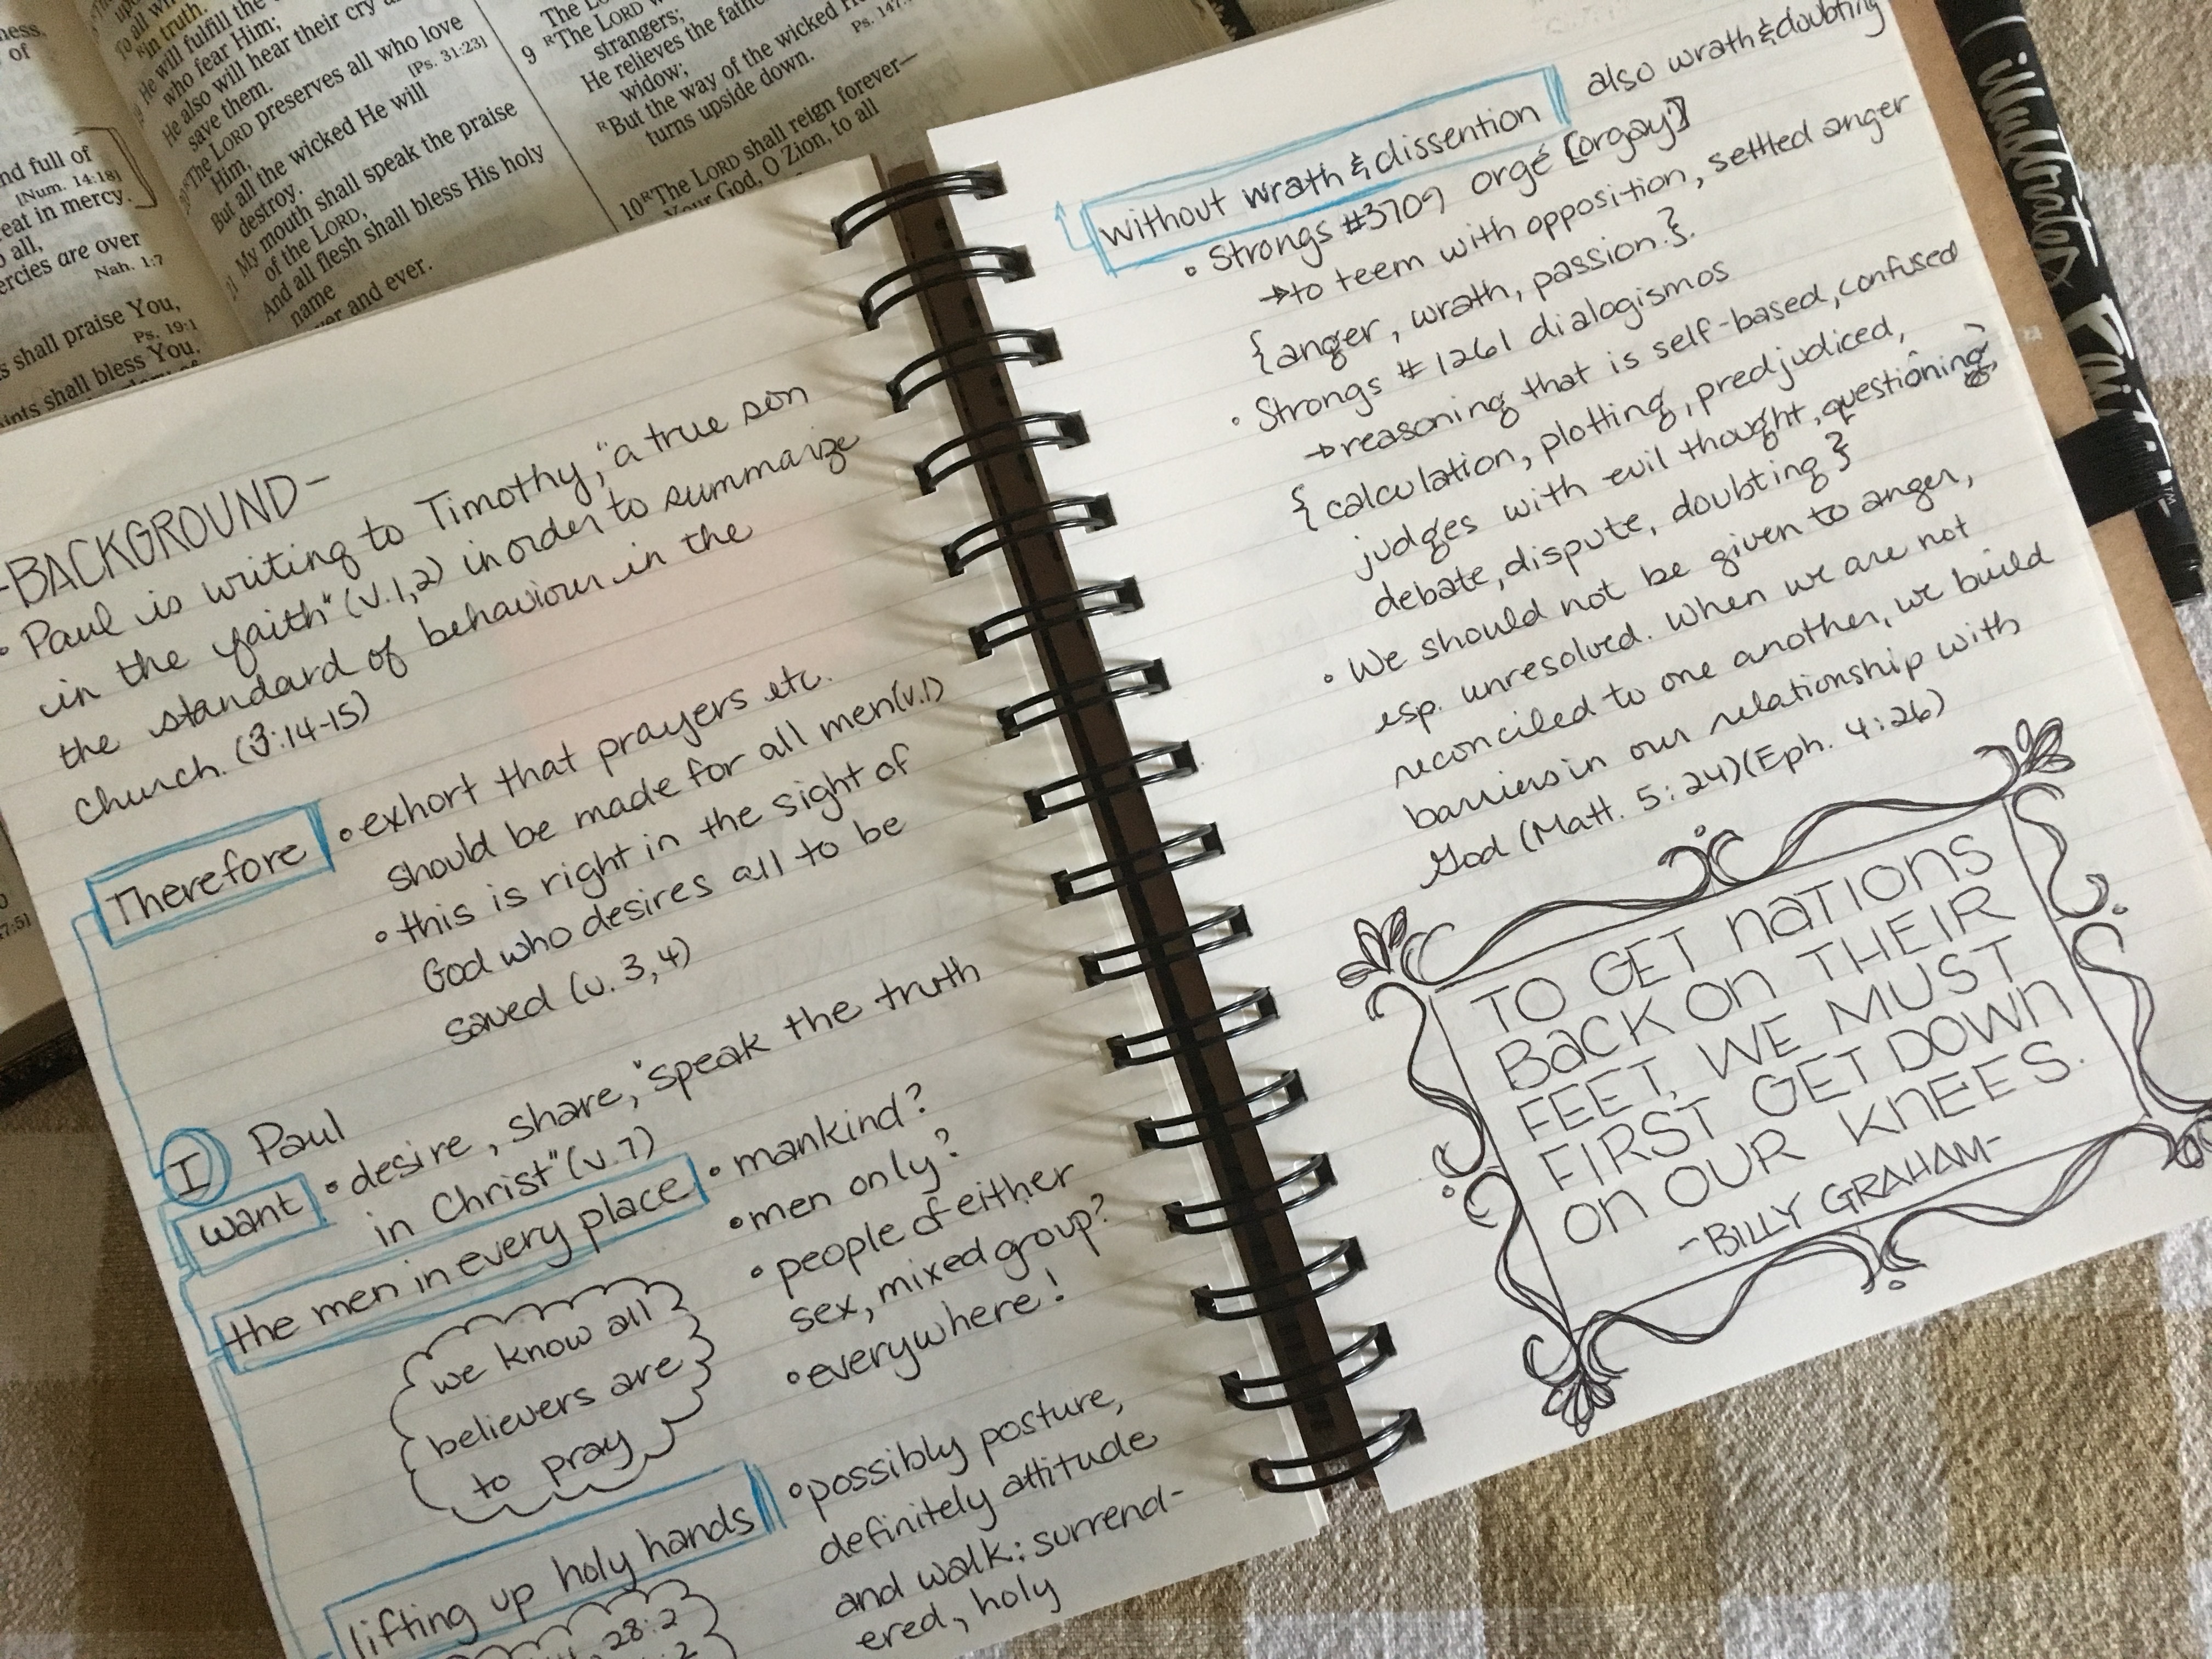 ness,
of
nd full of
[Num. 14:18]
eat in mercy.
o all,
ercies are over
Nah. 1:7
s shall praise You,
Ps. 19:1
ints shall bless You.
To all wh
R in truth.
He will fulfill the
who fear Him;
He also will hear their cry a
save them.
20 R The LORD preserves all who love
Him, [Ps. 31:23]
But all the wicked He will
destroy.
21 My mouth shall speak the praise
of the LORD,
And all flesh shall bless His holy
name
ver and ever.
The LO
R The LORD w
9 strangers;
He relieves the father
widow;
R But the way of the wicked He
turns upside down. Ps. 147:
10 R The LORD shall reign forever—
Your God, O Zion, to all
-BACKGROUND-
• Paul is writing to Timothy, "a true son
in the faith" (v.1,2) in order to summarize
the standard of behaviour in the
Church. (3:14-15)
Therefore • exhort that prayers etc.
should be made for all men (v.1)
• this is right in the sight of
God who desires all to be
saved (v. 3,4)
I Paul
want • desire, share, "speak the truth
in Christ" (v.7)
the men in every place • mankind?
• men only?
• people of either
sex, mixed group?
• everywhere!
we know all
believers are
to pray
lifting up holy hands • possibly posture,
definitely attitude
and walk: surrend-
ered, holy
28:2
:2
without wrath & dissention also wrath & doubting
• Strongs #3709 orgé [orgay']
→ to teem with opposition, settled anger
{anger, wrath, passion.}.
• Strongs #1261 dialogismos
→ reasoning that is self-based, confused
{calculation, plotting, predjudiced,
judges with evil thought, questioning,
debate, dispute, doubting}
• We should not be given to anger,
esp. unresolved. When we are not
reconciled to one another, we build
barriers in our relationship with
God (Matt. 5:24) (Eph. 4:26)
TO GET NATIONS
BACK ON THEIR
FEET, WE MUST
FIRST GET DOWN
ON OUR KNEES.
-BILLY GRAHAM-
illustrated
Faith
TM